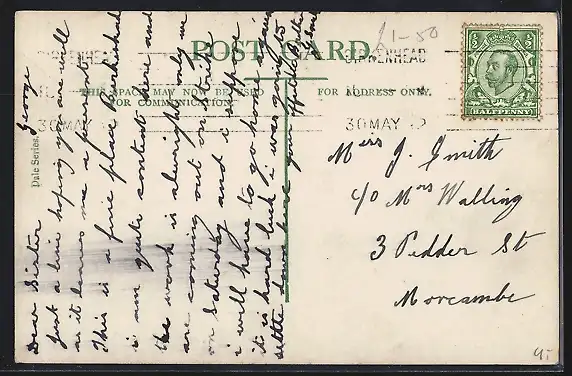 POST CARD
THIS SPACE MAY NOW BE USED
FOR COMMUNICATION.
FOR ADDRESS ONLY.
BIRKENHEAD
30 MAY 12
BIRKENHEAD
30 MAY
HALFPENNY
£1-50
Dale Series.
Dear Sister
Just a line hoping you are well
as it leaves me at present
This is a fine place Birkenhead
i am quite content here and
the work is alwright only we
are coming out on strike
on Saturday and i suppose
i will have to go home again
it is hard luck i was going to
settle down here
George
Mrs J. Smith
c/o Mrs Walling
3 Pedder St
Morcambe